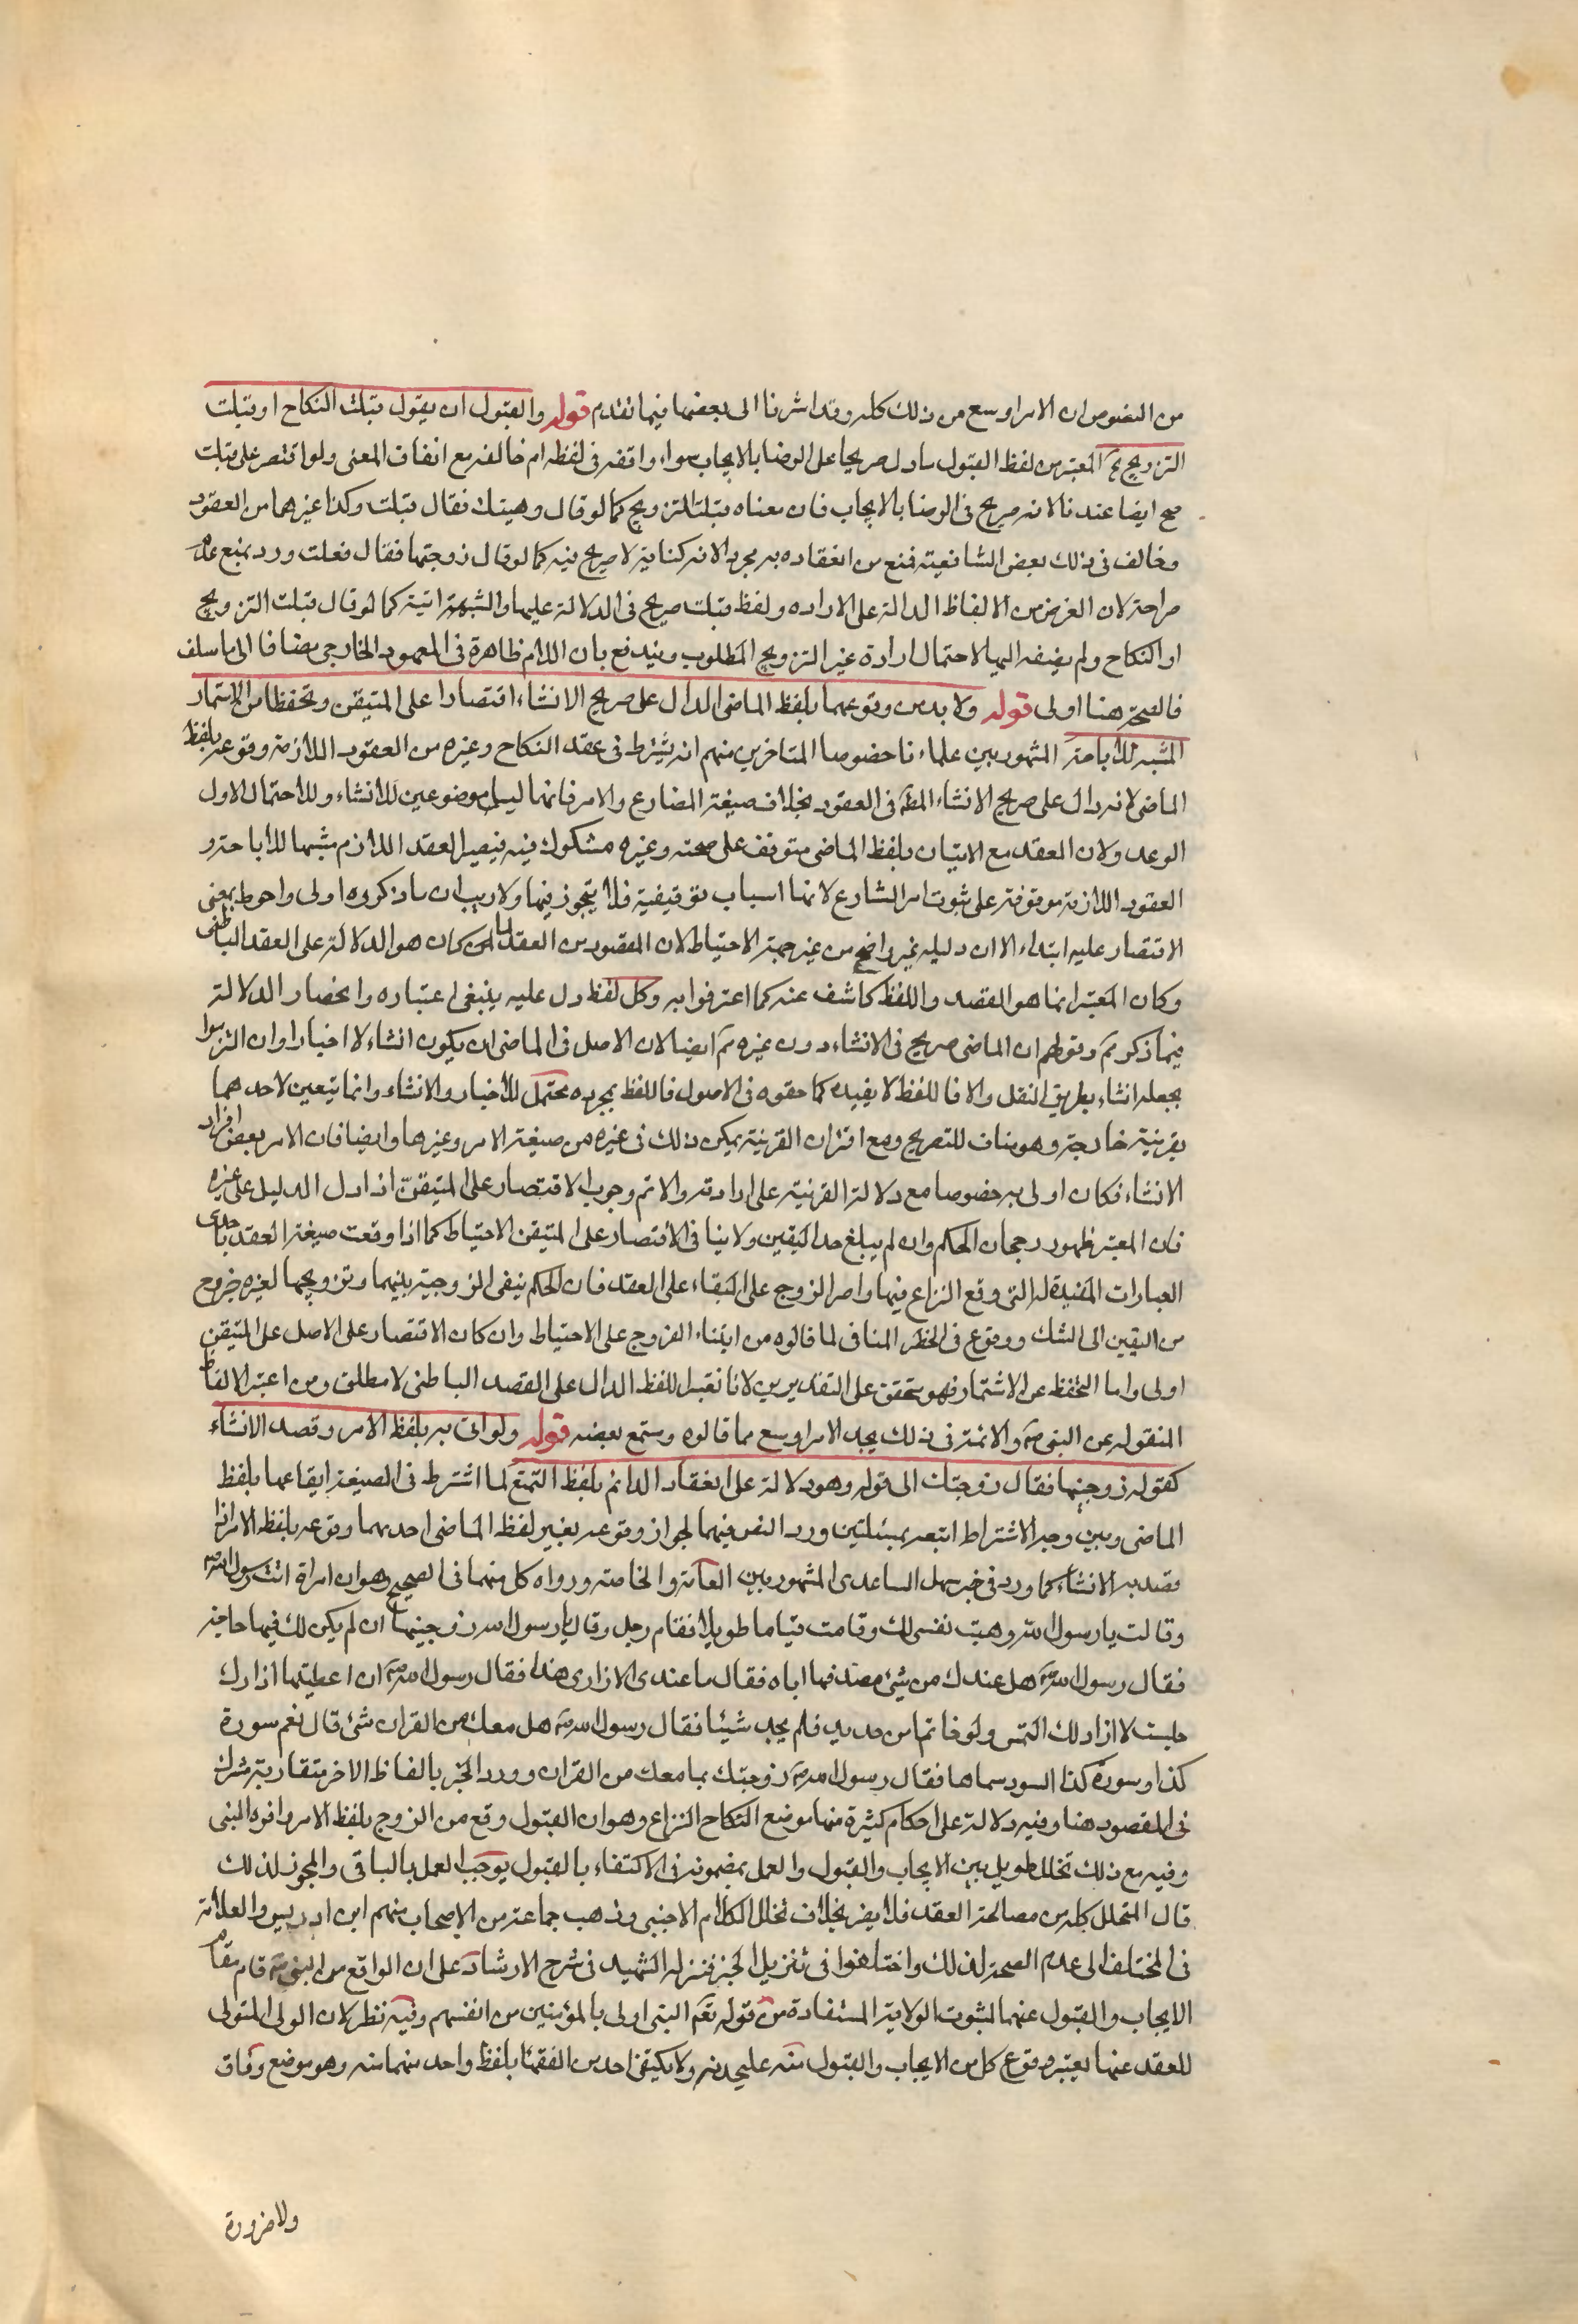 من النصوص ان الامر اوسع من ذلك كله وقد اشرنا الى بعضها فيما تقدم قوله والقبول ان يقول قبلت النكاح او قبلت
التزويج آه المعتبر من لفظ القبول ما دل صريحا على الرضا بالايجاب سواء وافقه في لفظه ام خالفه مع اتفاق المعنى ولو اقتصر على قبلت
صح ايضا عندنا لانه صريح في الرضا بالايجاب فان معناه قبلت التزويج كما لو قال وهبتك فقال قبلت وكذا غيرهما من العقود
وخالف في ذلك بعض الشافعية فمنع من انعقاده به مجردا لانه كناية لا صريح فيه كما لو قال زوجتها فقال فعلت ورد بمنع عدم
صراحته لان الغرض من الالفاظ الدالة على الاراده ولفظ قبلت صريح في الدلالة عليها والشبهة اتية كما لو قال قبلت التزويج
او النكاح ولم يضفه اليها لاحتمال ارادة غير التزويج المطلوب ويندفع بان اللام ظاهرة في المعهود الخارجي مضافا الى ما سلف
فالصحة هنا اولى قوله ولا بد من وقوعهما بلفظ الماضي الدال على صريح الانشاء اقتصارا على المتيقن وتحفظا من الاستمار
المشبه للاباحة المشهور بين علماءنا خصوصا المتاخرين منهم انه يشترط في عقد النكاح وغيره من العقود اللازمة وقوعه بلفظ
الماضي لانه دال على صريح الانشاء المط في العقود بخلاف صيغة المضارع والامر فانهما ليسا موضوعين للانشاء وللاحتمال الاول
الوعد ولان العقد مع الاتيان بلفظ الماضي متوقف على صحته وغيره مشكوك فيه فيصير العقد اللازم مشبها للاباحة و
العقود اللازمة موقوفة على ثبوت امر الشارع لانها اسباب توقيفية فلا يتجوز فيها ولا ريب ان ما ذكروه اولى واحوط بمعنى
الاقتصار عليه ابتداء الا ان دليله غير واضح من غير جهة الاحتياط لان المقصود من العقد لما كان هو الدلالة على العقد الباطني
وكان المعتبر انما هو القصد واللفظ كاشف عنه كما اعترفوا به وكل لفظ دل عليه ينبغي اعتباره وانحصار الدلالة
فيما ذكر مم وقولهم ان الماضي صريح في الانشاء دون غيره مم ايضا لان الاصل في الماضي ان يكون انشاء لا اخبارا وان التزموا
بجعله انشاء بطريق النقل والا فاللفظ لا يفيده كما حققوه في الاصول فاللفظ بمجرده محتمل للاخبار والانشاء وانما يتعين لاحدهما
بقرينة خارجة وهو مناف للتصريح ومع اقتران القرينة يمكن ذلك في غيره من صيغة الامر وغيرها وايضا فان الامر بعض افراد
الانشاء فكان اولى به خصوصا مع دلالة القرينة على ارادته والا تم وجوب الاقتصار على المتيقن اذا دل الدليل على غيره
فان المعتبر ظهور رجحان الحكم وان لم يبلغ حد اليقين ولا ينافي الاقتصار على المتيقن الاحتياط كما اذا وقعت صيغة العقد باحدى
العبارات المفيدة له التي وقع النزاع فيها واصر الزوج على البقاء على العقد فان الحكم بنفي الزوجية بينهما وتزويجها لغيره خروج
من اليقين الى الشك ووقوع في الحظر المنافي لما قالوه من ابتناء الفروج على الاحتياط وان كان الاقتصار على الاصل على المتيقن
اولى واما التحفظ عن الاشتمار فهو متحقق على التقديرين لانا نعتبر اللفظ الدال على القصد الباطني لا مطلق ومن اعتبر الالفاظ
المنقوله عن النبي ص والائمة في ذلك يجد الامر اوسع مما قالوه وستسمع بعضه قوله ولو اتى به بلفظ الامر وقصد الانشاء
كقوله زوجنيها فقال زوجتك الى قوله وهو دلالة على انعقاد الدائم بلفظ التمتع لما اشترط في الصيغة ايقاعها بلفظ
الماضي وبين وجه الاشتراط اتبعه بمسئلتين ورد النص فيهما لجواز وقوعه بغير لفظ الماضي احديهما وقوعه بلفظ الامر اذا
قصد به الانشاء كما ورد في خبر سهل الساعدى المشهور بين العامة والخاصة ورواه كل منهما في الصحيح وهو ان امراة اتت رسول الله ص
وقالت يا رسول الله وهبت نفسي لك وقامت قياما طويلا فقام رجل وقال يا رسول الله زوجنيها ان لم يكن لك فيها حاجة
فقال رسول الله ص هل عندك من شئ تصدقها اياه فقال ما عندى الا ازارى هذا فقال رسول الله ص ان اعطيتها ازارك
جلست لا ازار لك التمس ولو خاتما من حديد فلم يجد شيئا فقال رسول الله ص هل معك من القران شئ قال نعم سورة
كذا وسورة كذا السور سماها فقال رسول الله ص زوجتك بما معك من القران وورد الخبر بالفاظ الاخر متقاربة تشترك
في المقصود هنا وفيه دلالة على احكام كثيرة منها موضع النكاح النزاع وهو ان القبول وقع من الزوج بلفظ الامر واقره النبي
وفيه مع ذلك تخلل طويل بين الايجاب والقبول والعمل بمضمونه في الاكتفاء بالقبول يوجب العمل بالباقي والمجوز لذلك
قال المتخلل كله من مصالحة العقد فلا يضر بخلاف تخلل الكلام الاجنبي وذهب جماعة من الاصحاب منهم ابن ادريس والعلامة
في المختلف الى عدم الصحة لذلك واختلفوا في تنزيل الخبر فنزله الشهيد في شرح الارشاد على ان الواقع من النبي ص قام مقام
الايجاب والقبول عنهما لثبوت الولاية المستفادة من قوله تعم النبي اولى بالمؤمنين من انفسهم وفيه نظر لان الولى المتولى
للعقد عنهما يعتبر وقوع كل من الايجاب والقبول منه عليحده ولا يكتفي احد من الفقهاء بلفظ واحد منهما منه وهو موضع وفاق
ولا ضرورة